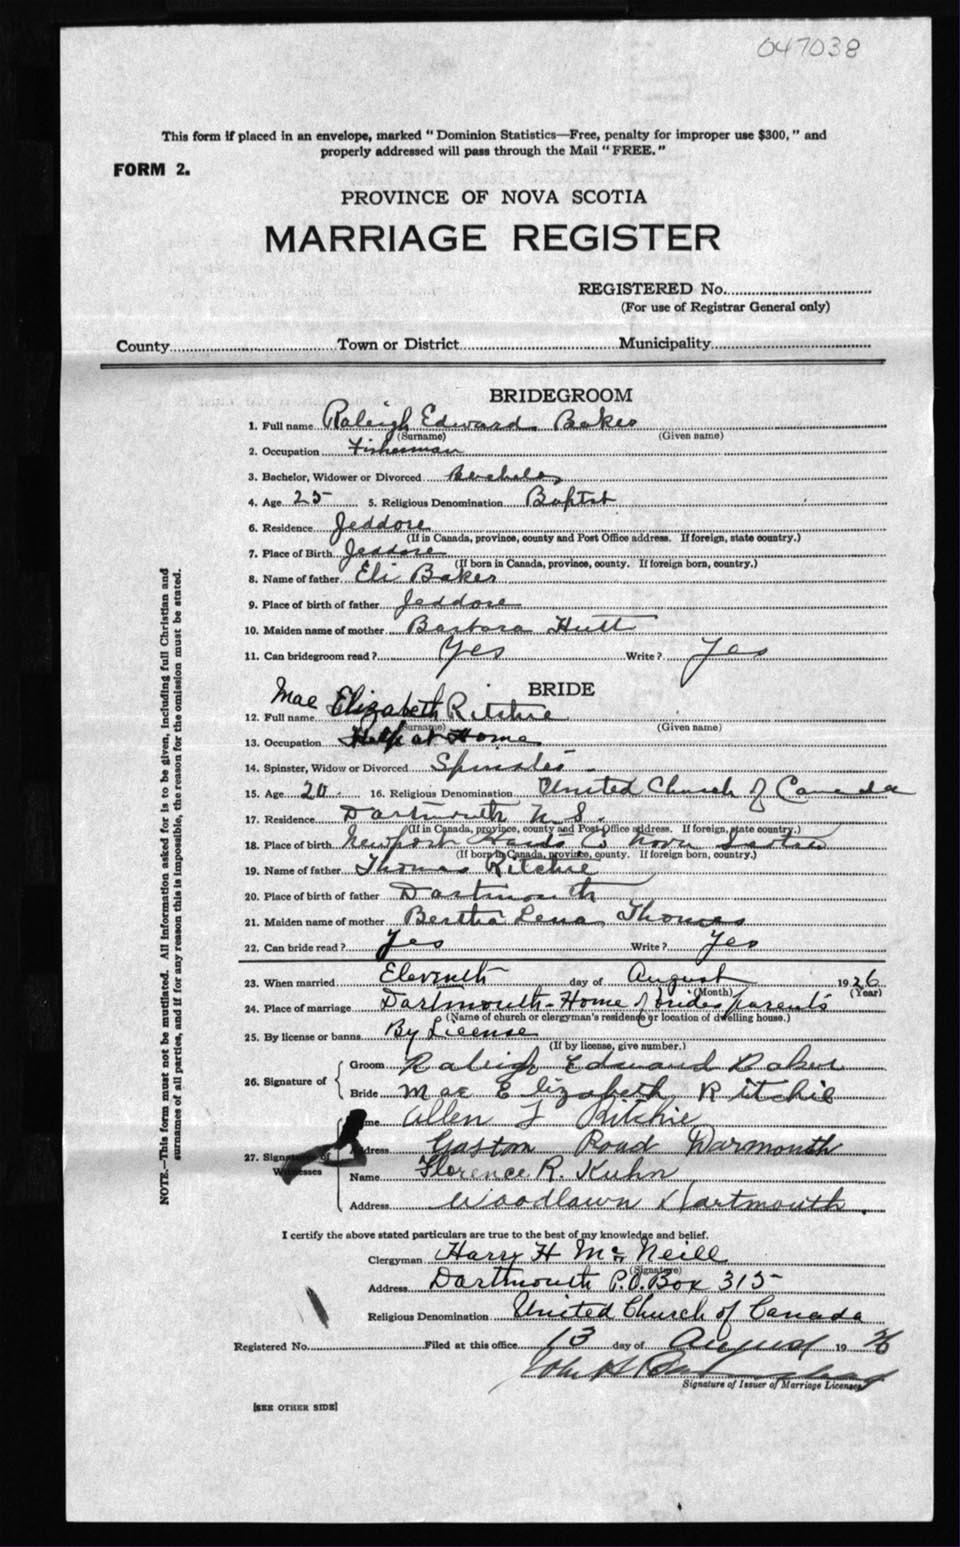 047038
This form if placed in an envelope, marked "Dominion Statistics—Free, penalty for improper use $300," and
properly addressed will pass through the Mail "FREE."
FORM 2.
PROVINCE OF NOVA SCOTIA
MARRIAGE REGISTER
REGISTERED No.
(For use of Registrar General only)
County Town or District Municipality
BRIDEGROOM
1. Full name Raleigh Edward Baker
(Surname) (Given name)
2. Occupation Fisherman
3. Bachelor, Widower or Divorced Bachelor
4. Age 25 5. Religious Denomination Baptist
6. Residence Jeddore
(If in Canada, province, county and Post Office address. If foreign, state country.)
7. Place of Birth Jeddore
(If born in Canada, province, county. If foreign born, country.)
8. Name of father Eli Baker
9. Place of birth of father Jeddore
10. Maiden name of mother Barbara Hutt
11. Can bridegroom read? Yes Write? Yes
BRIDE
12. Full name Mae Elizabeth Ritchie
(Surname) (Given name)
13. Occupation Help at Home
14. Spinster, Widow or Divorced Spinster
15. Age 20 16. Religious Denomination United Church of Canada
17. Residence Dartmouth N.S.
(If in Canada, province, county and Post Office address. If foreign, state country.)
18. Place of birth Newport Hants Co Nova Scotia
(If born in Canada, province, county. If foreign born, country.)
19. Name of father Thomas Ritchie
20. Place of birth of father Dartmouth
21. Maiden name of mother Bertha Lena Thomas
22. Can bride read? Yes Write? Yes
23. When married Eleventh day of August 1926
(Month) (Year)
24. Place of marriage Dartmouth-Home of brides parents
(Name of church or clergyman's residence or location of dwelling house.)
25. By license or banns By License
(If by license, give number.)
26. Signature of Groom Raleigh Edward Baker
Bride Mae Elizabeth Ritchie
27. Signatures of Witnesses
Name Allen F Ritchie
Address Gaston Road Darmouth
Name Florence R. Kuhn
Address Woodlawn Dartmouth.
I certify the above stated particulars are true to the best of my knowledge and belief.
Clergyman Harry H McNeill
(Signature)
Address Dartmouth P.O. Box 315
Religious Denomination United Church of Canada
Registered No. Filed at this office 13 day of August 1926
John
Signature of Issuer of Marriage Licenses
[SEE OTHER SIDE]
NOTE.—This form must not be mutilated. All information asked for is to be given, including full Christian and
surnames of all parties, and if for any reason this is impossible, the reason for the omission must be stated.